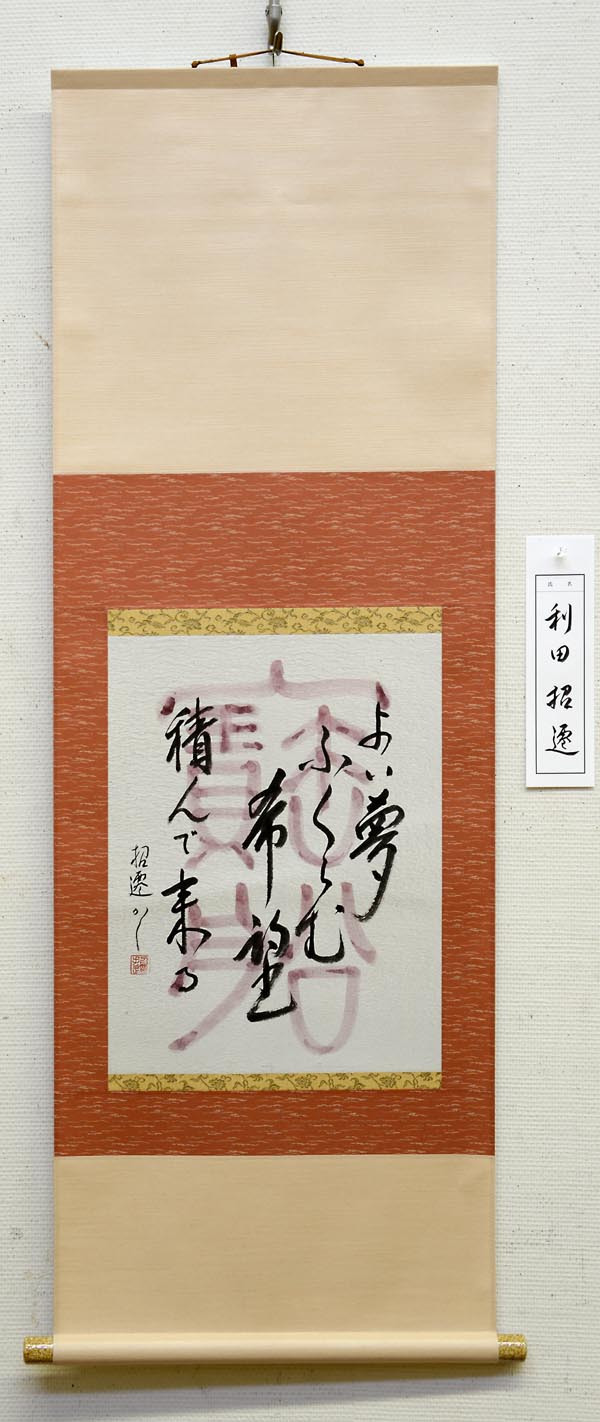 よい夢
ふくらむ
希望
積んで来る
招遷かく
氏名
利田招遷